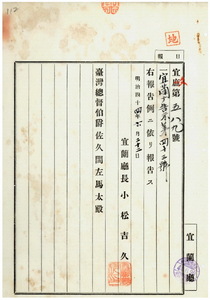 地
報 日
宜庶第五八九號
右報告例ニ依リ報告ス
明治四十四年六月二十三日
宜蘭廳長 小松吉久
臺灣總督伯爵佐久間左馬太殿
宜蘭廳